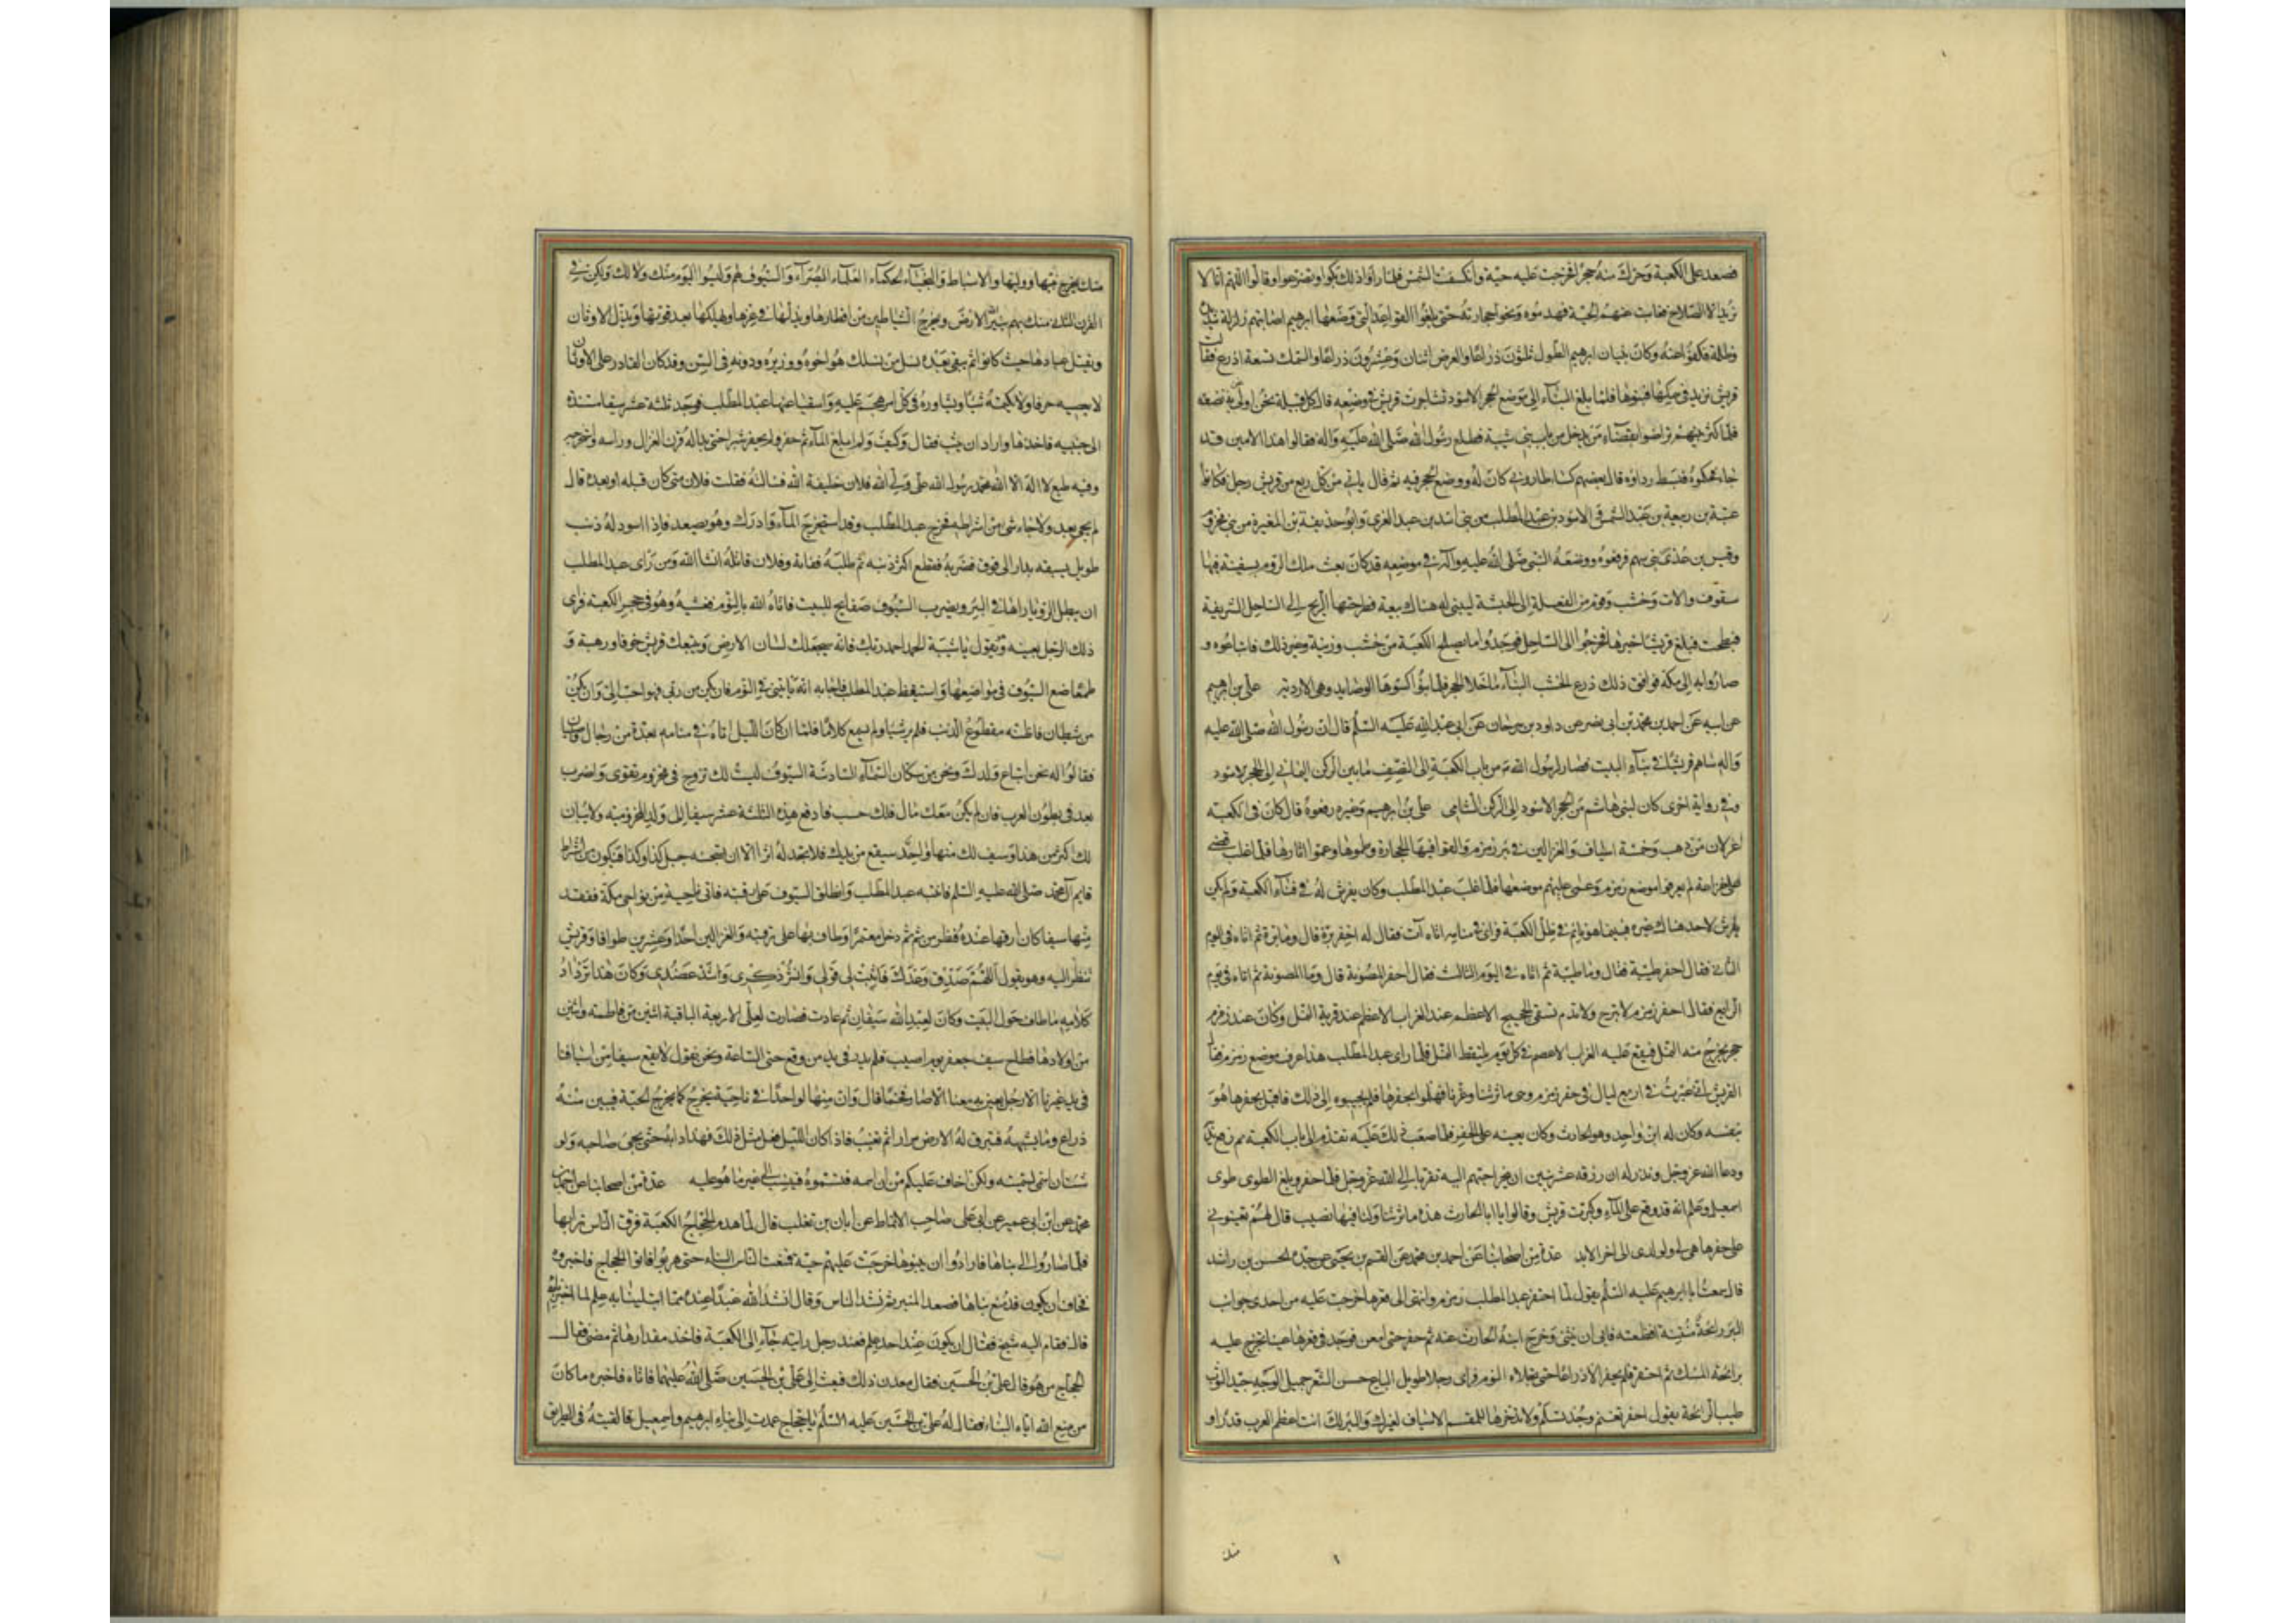 فصعد على الكعبة وحرك منه حجرا فخرجت عليه حية وانكسفت الشمس فلما راوا ذلك بكوا وتضرعوا وقالوا اللهم انا لا
نريد الا الصلاح فغابت عنهم الحية فهدموه ونحوا حجارته حتى بلغوا القواعد التي وضعها ابرهيم اصابتهم زلزلة شديدة
وظلمة فكفوا عنه وكان بنيان ابرهيم الطول ثلثون ذراعا والعرض اثنان وعشرون ذراعا والسمك تسعة اذرع فقالت
قريش نزيد في سمكها فبنوها فلما بلغ البناء الى موضع الحجر الاسود تشاجرت قريش في وضعه قال كل قبيلة نحن اولى به نضعه
فلما كثر بينهم تراضوا بقضاء من يدخل من باب بني شيبة فطلع رسول الله صلى الله عليه واله فقالوا هذا الامين قد
جاء فحكموه فبسط رداؤه قال بعضهم كساء طاروني كان له ووضع الحجر فيه ثم قال ياتي من كل ربع من قريش رجل فكانوا
عتبة بن ربيعة بن عبد الشمس والاسود بن عبد المطلب من بني اسد بن عبد العزى وابو حذيفة بن المغيرة من بني مخزوم
وقيس بن عدي من بني سهم فرفعوه ووضعه النبي صلى الله عليه واله في موضعه قد كان بعث ملك الروم بسفينة فيها
سقوف والات وخشب وقوم من الفعلة الى الحبشة ليبنى له هناك بيعة فطرحتها الريح الى الساحل الشريفة
فبطحت فبلغ قريشا خبرها فخرجوا الى الساحل فوجدوا ما يصلح للكعبة من خشب وزينة وغير ذلك فابتاعوه و
صاروا به الى مكة فوافق ذلك ذرع الخشب البناء ما خلا الحجر فلما بنوا كسوها الوصايد وهي الاردية علي بن ابرهيم
عن ابيه عن احمد بن محمد بن ابي نصر عن داود بن سرحان عن ابي عبد الله عليه السلم قال ان رسول الله صلى الله عليه
واله ساهم قريشا في بناء البيت فصار لرسول الله ص من باب الكعبة الى النصف ما بين الركن اليماني الى الحجر الاسود
وفي رواية اخرى كان لبني هاشم من الحجر الاسود الى الركن الشامي علي بن ابرهيم وغيره رفعوه قال كان في الكعبة
غزالان من ذهب وخمسة اسياف والغزالين في بئر زمزم والقوا فيها الحجارة وطموها وعموا اثارها فلما غلب قصي
على خزاعة لم يعرفوا موضع زمزم وعمى عليهم موضعها فلما غلب عبد المطلب وكان يفرش له في فناء الكعبة ولم يكن
يفرش لاحد هناك غيره فبينما هو نائم في ظل الكعبة فراى في منامه اتاه آت فقال له احفر برة قال وما برة ثم اتاه في اليوم
الثاني فقال احفر طيبة فقال وما طيبة ثم اتاه في اليوم الثالث فقال احفر المصونة قال وما المصونة ثم اتاه في يوم
الرابع فقال احفر زمزم لا تبرح ولا تذم تسقي الحجيج الاعظم عند الغراب الاعظم عند قرية النمل وكان عند زمزم
حجر يخرج منه النمل فيقع عليه الغراب الاعصم في كل يوم يلتقط النمل فلما راى عبد المطلب هذا عرف موضع زمزم فقال
لقريش اني عبرت في اربع ليال في حفر زمزم وهي ماثرتنا وعزنا فهلموا نحفرها فلم يجيبوه الى ذلك فاقبل يحفرها هو
بنفسه وكان له ابن واحد وهو الحارث وكان يعينه على الحفر فلما صعب ذلك عليه تقدم الى باب الكعبة ثم رفع يديه
ودعا الله عز وجل ونذر له ان رزقه عشر بنين ان ينحر احبهم اليه تقربا الى الله عز وجل فلما حفر وبلغ الطوى طوى
اسمعيل وعلم انه قد وقع على الماء وكبرت قريش وقالوا يا ابا الحارث هذه ماثرتنا ولنا فيها نصيب قال لهم لم تعينوني
على حفرها هي لي ولولدي الى اخر الابد عدة من اصحابنا عن احمد بن محمد عن القسم بن يحيى عن جده الحسن بن راشد
قال سمعت ابا ابرهيم عليه السلم يقول لما احتفر عبد المطلب زمزم وانتهى الى قعرها خرجت عليه من احدى جوانب
البئر رائحة منتنة افظعته فابى ان ينثني وخرج ابنه الحارث عنه ثم حفر حتى امعن فوجد في قعرها عينا تخرج عليه
برائحة المسك ثم احتفر فلم يحفر الا ذراعا حتى تجلاه النوم فراى رجلا طويل الباع حسن الشعر جميل الوجه جيد الثوب
طيب الرائحة يقول احفر تغنم وجد تسلم ولا تدخرها للمقسم الاسياف لغيرك والبئر لك انت اعظم العرب قدرا و
منك يخرج نبيها ووليها والاسباط والنجباء الحكماء العلماء البصراء والسيوف لهم وليسوا اليوم منك ولا لك ولكن في
القرن الثاني منك بهم ينير الله الارض ويخرج الشياطين من اقطارها ويذلها في عزها ويهلكها بعد قوتها ويذل الاوثان
ويقتل عبادها حيث كانوا ثم يبقى بعده نسل من نسلك هو اخوه ووزيره ودونه في السن وقد كان القادر على الاوثان
لا يعصيه حرفا ولا يكتمه شيئا ويشاوره في كل امر هجم عليه واستعيا عنها عبد المطلب فوجد ثلثة عشر سيفا مسندة
الى جنبه فاخذها واراد ان يبث فقال وكيف ولم ابلغ الماء ثم حفر ولم يحفر شبرا حتى بدا له قرن الغزال وراسه فاستخرجه
وفيه طبع لا اله الا الله محمد رسول الله علي ولي الله فلان خليفة الله فسالته فقلت فلان متى كان قبله او بعده قال
لم يجئ بعد ولا جاء شئ من اشراطه فخرج عبد المطلب وقد استخرج الماء وادرك وهو يصعد فاذا اسود له ذنب
طويل يسبقه بدارا الى فوق فضربه فقطع اكثر ذنبه ثم طلبه ففاته وفلان قاتله انشا الله ومن راى عبد المطلب
ان يبطل الرؤيا راها في البئر ويضرب السيوف صفايح للبيت فاتاه الله بالنوم فغشيه وهو في حجر الكعبة فراى
ذلك الرجل بعينه وتقول يا شيبة الحمد احمد ربك فانه سيجعلك لسان الارض ويتبعك قريش خوفا ورهبة و
طمعا ضع السيوف في مواضعها واستيقظ عبد المطلب فاجابه انه ياتيني في النوم فان يكن من ربي فهو احب الي وان يكن
من شيطان فاظنه مقطوع الذنب فلم ير شيئا ولم يسمع كلاما فلما ان كان الليل اتاه في منامه بعدة من رجال وصبيان
فقالوا له نحن اتباع ولدك ونحن من سكان السماء السادسة السيوف ليست لك تزوج في مخزوم تقوى واضرب
بعد في بطون العرب فان لم يكن معك مال فلك حسب فادفع هذه الثلثة عشر سيفا الى ولد المخزومية ولا يبان
لك اكثر من هذا وسيف لك منها واحد سيقع من يدك فلا تجد له اثرا الا ان يستجنه جبل كذا وكذا فيكون من اشراط
قايم آل محمد صلى الله عليه السلم فانتبه عبد المطلب وانطلق السيوف على رقبته فاتى ناحية من نواحي مكة ففقد
منها سيفا كان ارقها عنده فظهر من ثم ثم دخل معتمرا وطاف بها على رقبته والغزالين احدا وعشرين طوافا وقريش
تنظر اليه وهو يقول اللهم صدق وعدك فاثبت لي قولي وانشر ذكري واشدد عضدي وكان هذا ترداد
كلامه ما طاف حول البيت وكان لعبد الله سيفان ثم عادت فصارت لعلي الاربعة الباقية اثنين من فاطمة واثنين
من اولادها فطاح سيف جعفر يوم اصيب فلم يدر في يد من وقع حتى الساعة ونحن نقول لا يقع سيف من اسيافنا
في يد غيرنا الا رجل يعين به معنا الا صار فحما قال وان منها لواحدا في ناحية يخرج كما يخرج الحية فيبين منه
ذراع وما يشبهه فتبرق له الارض مرارا ثم يغيب فاذا كان الليل فعل مثل ذلك فهذا دابه حتى يجئ صاحبه ولو
شئت ان اسمي لسميته ولكن اخاف عليكم من ان اسمه فتسموه فينسب الى غير ما هو عليه عدة من اصحابنا عن احمد بن
محمد عن ابن ابي عمير عن ابي علي صاحب الانماط عن ابان بن تغلب قال لما هدم الحجاج الكعبة فرق الناس ترابها
فلما صاروا الى بنائها فارادوا ان يبنوها خرجت عليهم حية فمنعت الناس البناء حتى هربوا فاتوا الحجاج فاخبروه
فخاف ان يكون قد منع بناها فصعد المنبر ثم نشد الناس وقال انشد الله عبدا عنده مما ابتلينا به علم لما اخبرنا به
قال فقام اليه شيخ فقال ان يكون عند احد علم فعند رجل رايته جاء الى الكعبة فاخذ مقدارها ثم مضى فقال
الحجاج من هو قال علي بن الحسين فقال معدن ذلك فبعث الى علي بن الحسين صلى الله عليهما فاتاه فاخبره ما كان
من منع الله اياه البناء فقال له علي بن الحسين عليه السلم يا حجاج عمدت الى بناء ابرهيم واسمعيل فالقيته في الطريق
منك